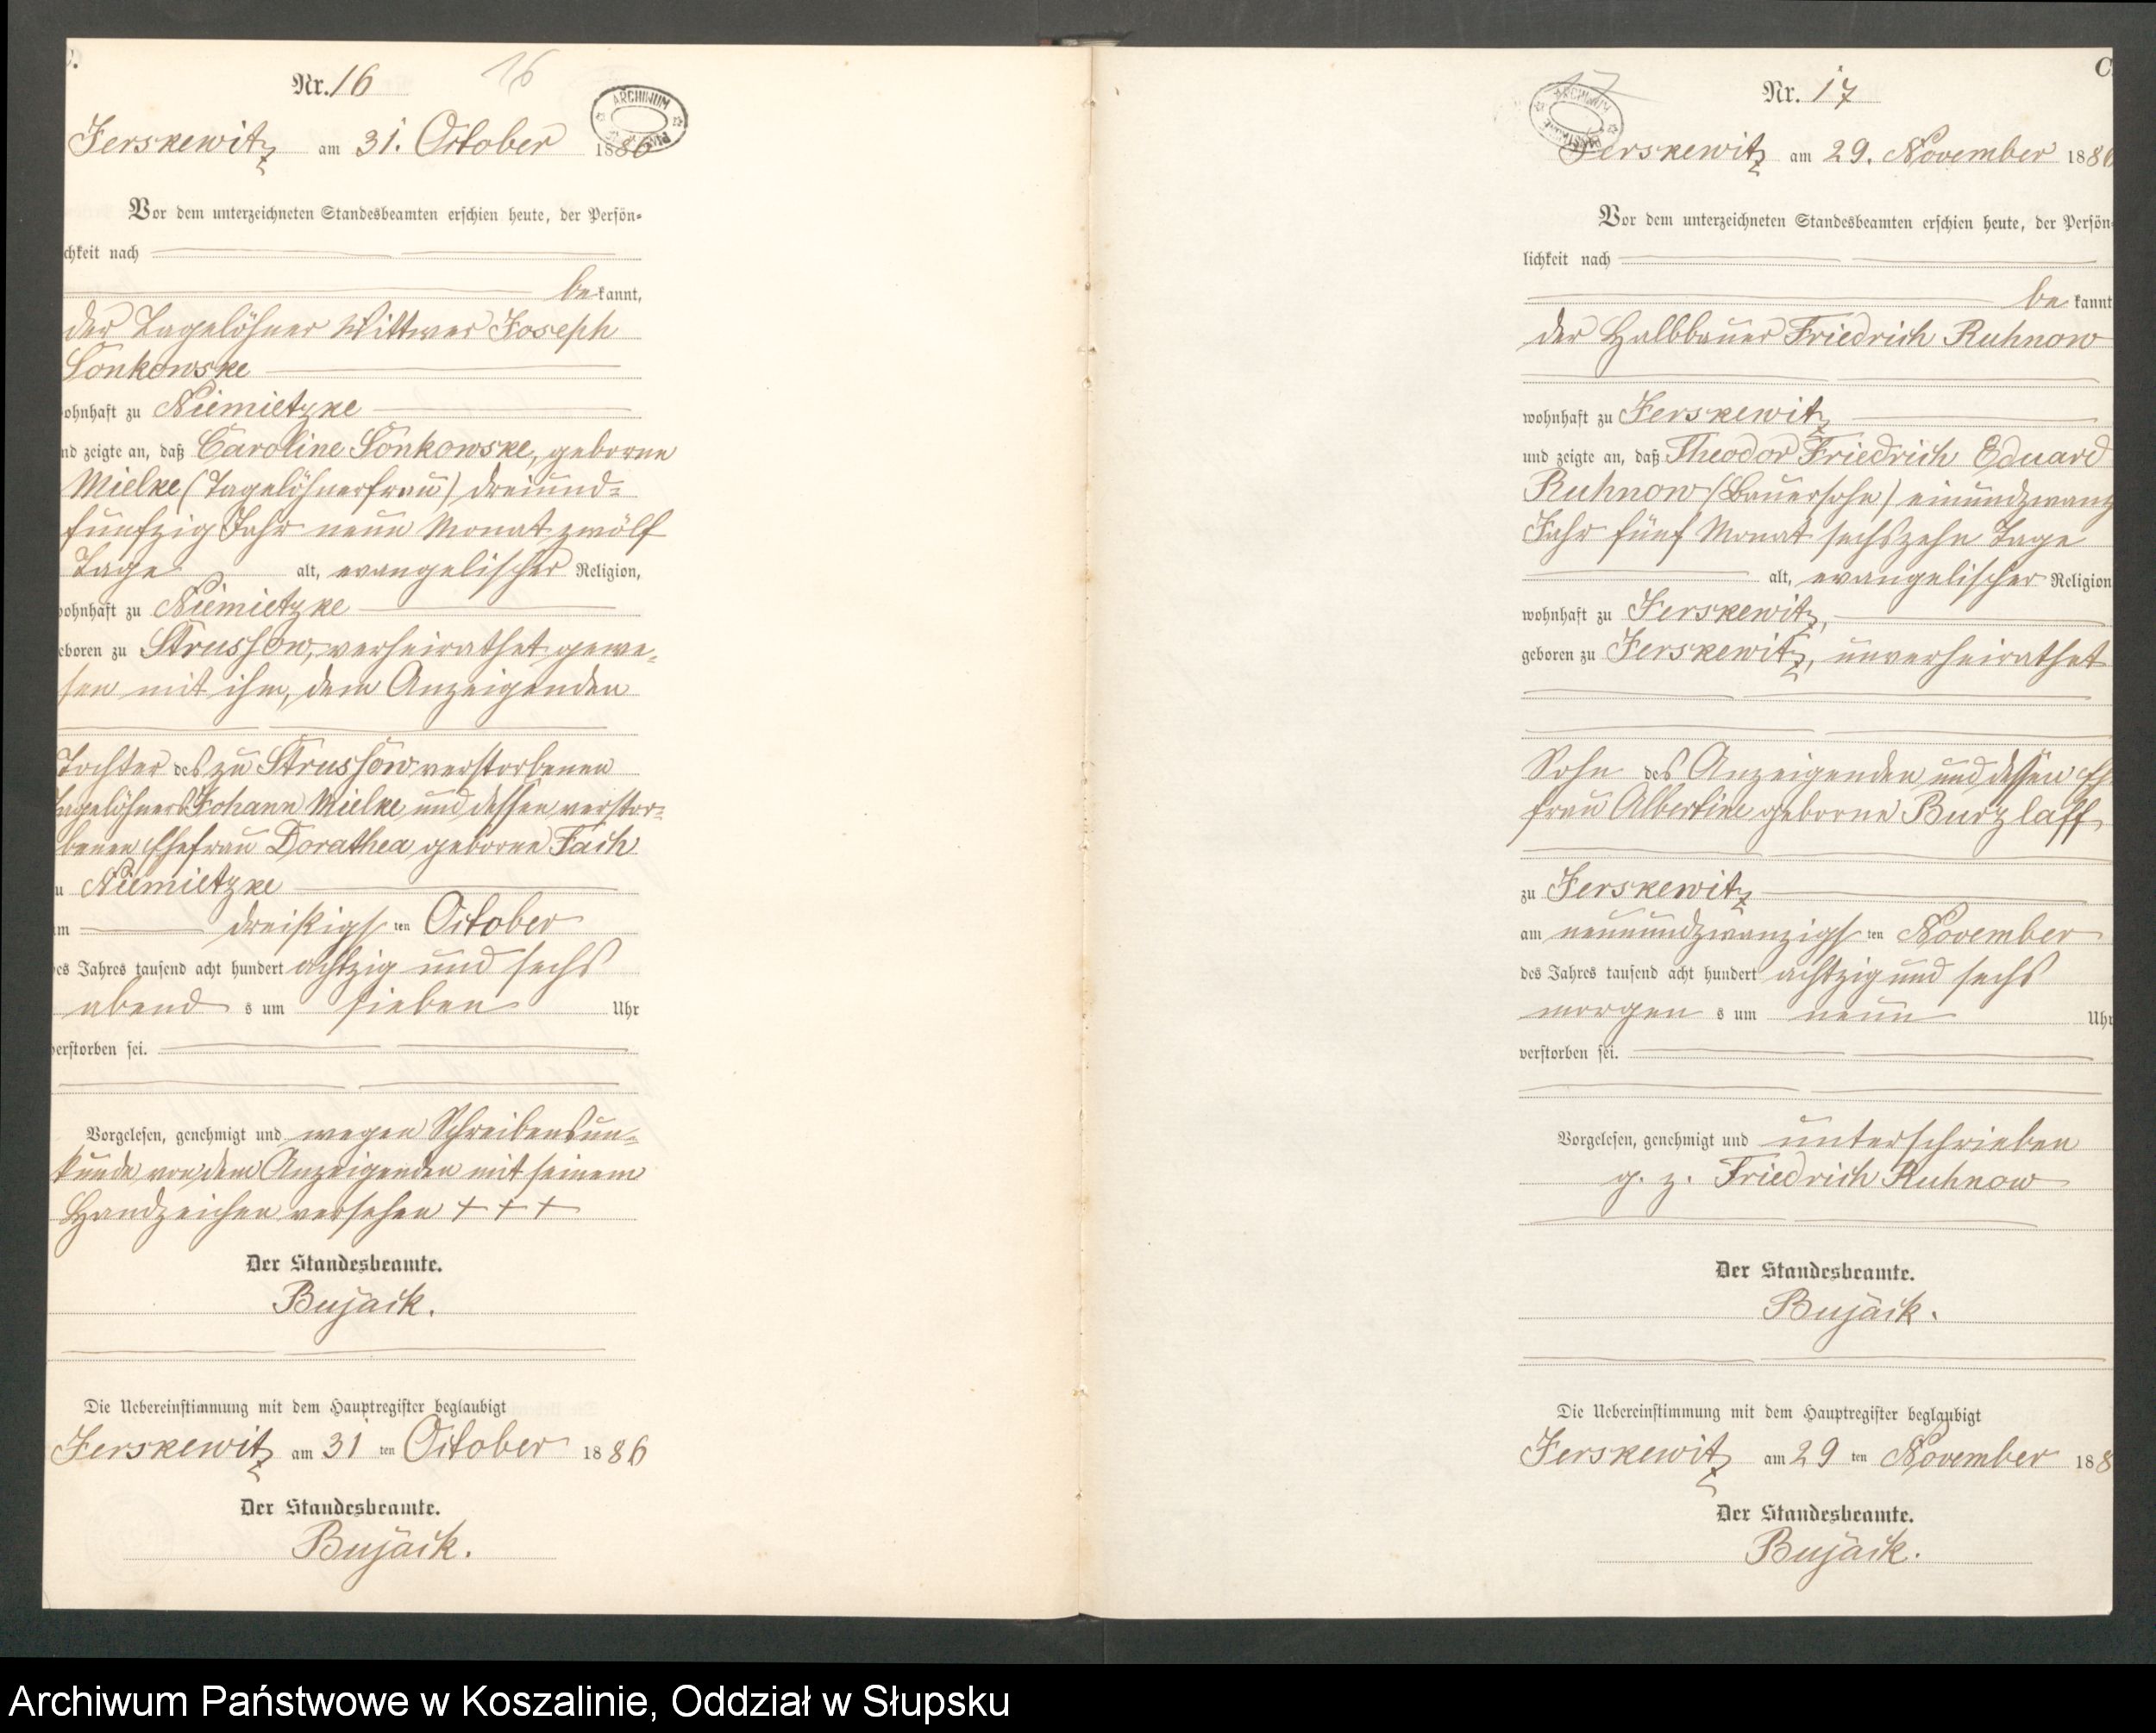 Nr. 16
16
ARCHIWUM
Jerskewitz am 31. October 1886
Vor dem unterzeichneten Standesbeamten erschien heute, der Persön-
chkeit nach
be kannt,
der Tagelöhner Wittwer Joseph
Sonkowske
ohnhaft zu Niemietzke
nd zeigte an, daß Caroline Sonkowske, geborne
Mielke (Tagelöhnerfrau) dreiund-
fünfzig Jahr neun Monat zwölf
Tage alt, evangelischer Religion,
ohnhaft zu Niemietzke
eboren zu Strussow, verheirathet gewe-
sen mit ihm, dem Anzeigenden
Tochter des zu Strussow verstorbenen
Tagelöhners Johann Mielke und dessen verstor-
benen Ehefrau Dorathea geborne Fach
u Niemietzke
m dreißigs ten October
es Jahres tausend acht hundert achtzig und sechs
abend s um sieben Uhr
verstorben sei.
Vorgelesen, genehmigt und wegen Schreibensun-
kunde von dem Anzeigenden mit seinem
Handzeichen versehen + + +
Der Standesbeamte.
Bujack.
Die Uebereinstimmung mit dem Hauptregister beglaubigt
Jerskewitz am 31 ten October 1886
Der Standesbeamte.
Bujack.
C
Nr. 17
17
ARCHIWUM
Jerskewitz am 29. November 1886
Vor dem unterzeichneten Standesbeamten erschien heute, der Persön-
lichkeit nach
be kannt
der Halbbauer Friedrich Ruhnow
wohnhaft zu Jerskewitz
und zeigte an, daß Theodor Friedrich Eduard
Ruhnow (Bauersohn) einundzwanz
Jahr fünf Monat sechszehn Tage
alt, evangelischer Religion
wohnhaft zu Jerskewitz,
geboren zu Jerskewitz, unverheirathet
Sohn des Anzeigenden und dessen Eh
frau Albertine geborne Burzlaff
zu Jerskewitz
am neunundzwanzigs ten November
des Jahres tausend acht hundert achtzig und sechs
morgen s um neun Uhr
verstorben sei.
Vorgelesen, genehmigt und unterschrieben
g. z. Friedrich Ruhnow
Der Standesbeamte.
Bujack.
Die Uebereinstimmung mit dem Hauptregister beglaubigt
Jerskewitz am 29 ten November 188
Der Standesbeamte.
Bujack.
Archiwum Państwowe w Koszalinie, Oddział w Słupsku